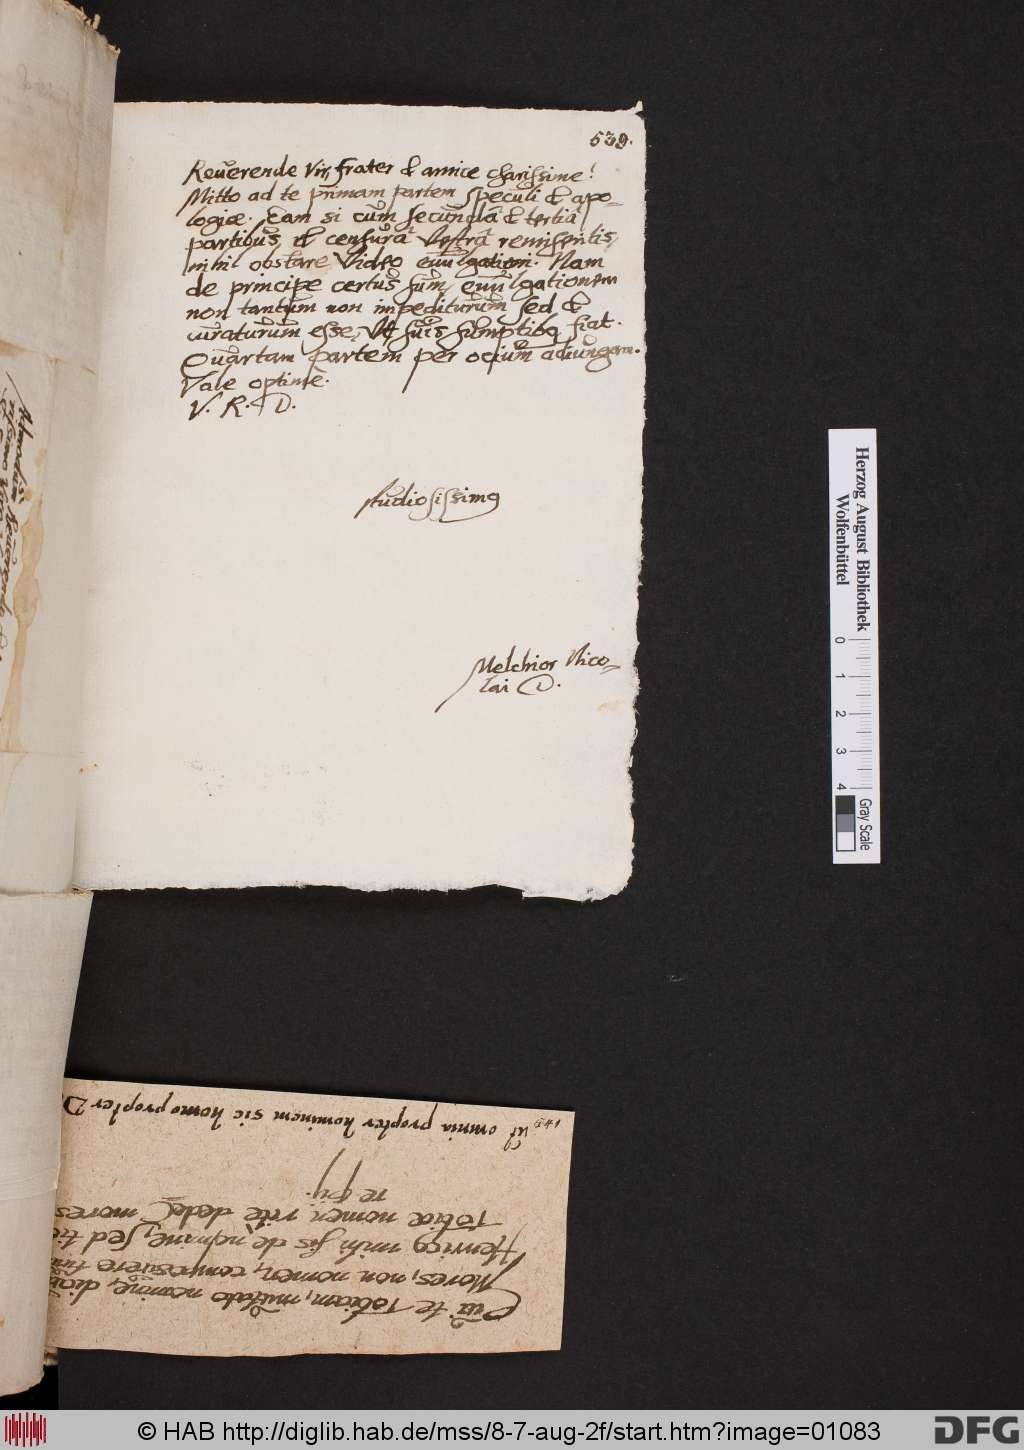 539.
Reuerende Vir, frater & amice charissime!
Mitto ad te primam partem speculi & apo-
logiæ. Eam si cum secundâ & tertiâ
partibus, & censurâ Vestrâ remiseritis,
nihil obstare Video euulgationi. Nam
de principe certus sum, euulgationem
non tantum non impediturum sed &
curaturum esse, Vt suis sumptibq fiat.
Quartam partem per ocium adiungam.
Vale optimè.
V. R. D.
studiosissimq
Melchior Nico-
lai D.
Herzog August Bibliothek
Wolfenbüttel
0 1 2 3 4
Gray Scale
te Tobiam, mutato nomine,
Mores, non nomen,
Henrico mihi sis de nomine, sed
Tobiæ nomen rite dedêre mores
Ut omnia propter hominem sic homo propter D
© HAB http://diglib.hab.de/mss/8-7-aug-2f/start.htm?image=01083
DFG